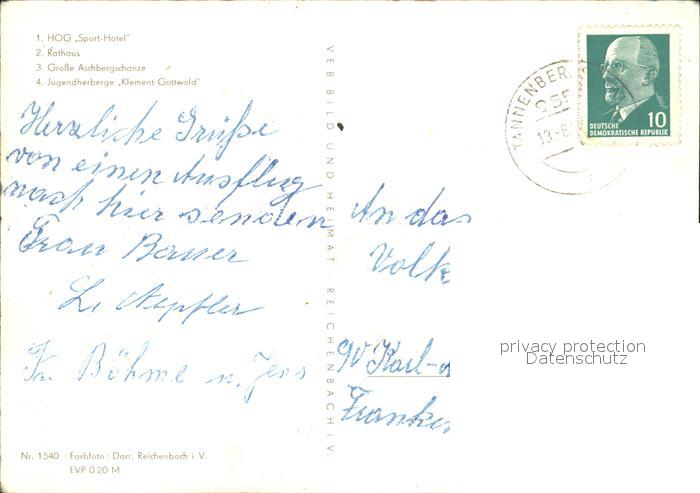 1. HOG „Sport-Hotel"
2. Rathaus
3. Große Aschbergschanze
4. Jugendherberge „Klement Gottwald"
Herzliche Grüße
von einen Ausflug
nach hier senden
Frau Bauer
Aepfler
Fr. Böhme u. Jens
Nr. 1540 Farbfoto: Darr. Reichenbach i. V.
EVP 0.20 M
VEB BILD UND HEIMAT · REICHENBACH i. V.
TANNENBER
10
DEUTSCHE
DEMOKRATISCHE REPUBLIK
An das
Volk
90 Karl-
Franke
privacy protection
Datenschutz